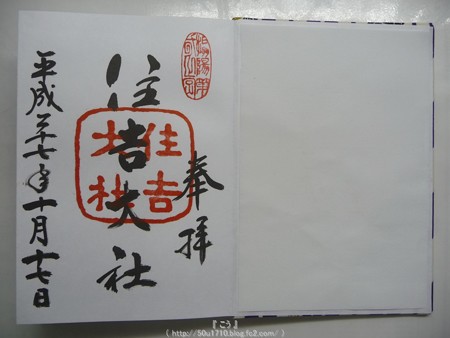 奉拝
住吉大社
住吉大社
平成二十七年十月十七日
『こう』
( http://50u1710.blog.fc2.com/ )